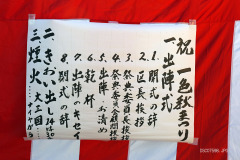 祝 一色秋まつり
一、出陣式
1. 開式の辞
2. 区長挨拶
3. 祭典委員長挨拶
4. 祭典委員会顧問挨拶
5. 出陣お清め
6. 乾杯
7. 出陣のキセイ
8. 閉式の辞
二、きおい出し
三、煙火